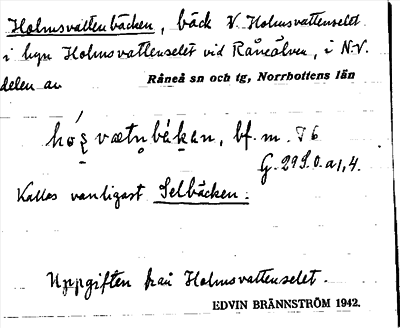 Holmsvattenbäcken, bäck V Holmsvattenselet
i byn Holmsvattenselet vid Råneälven, i N.V.
delen av Råneå sn och tg, Norrbottens län
bf. m. T6
G. 29 S.O. a1,4.
Kallas vanligast Selbäcken.
Uppgiften från Holmsvattenselet.
EDVIN BRÄNNSTRÖM 1942.